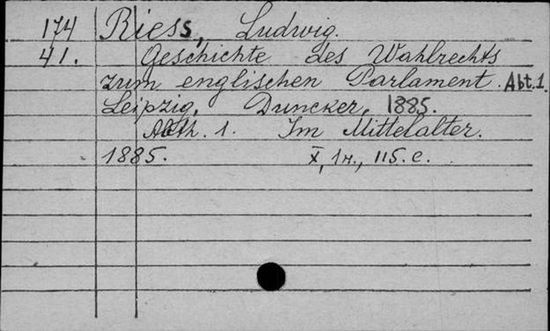 174 Riess, Ludwig.
41. Geschichte des Wahlrechts
zum englischen Parlament. Abt. 1.
Leipzig, Duncker, 1885.
Abth. 1. Im Mittelalter.
1885. X, 1н., 115. с.